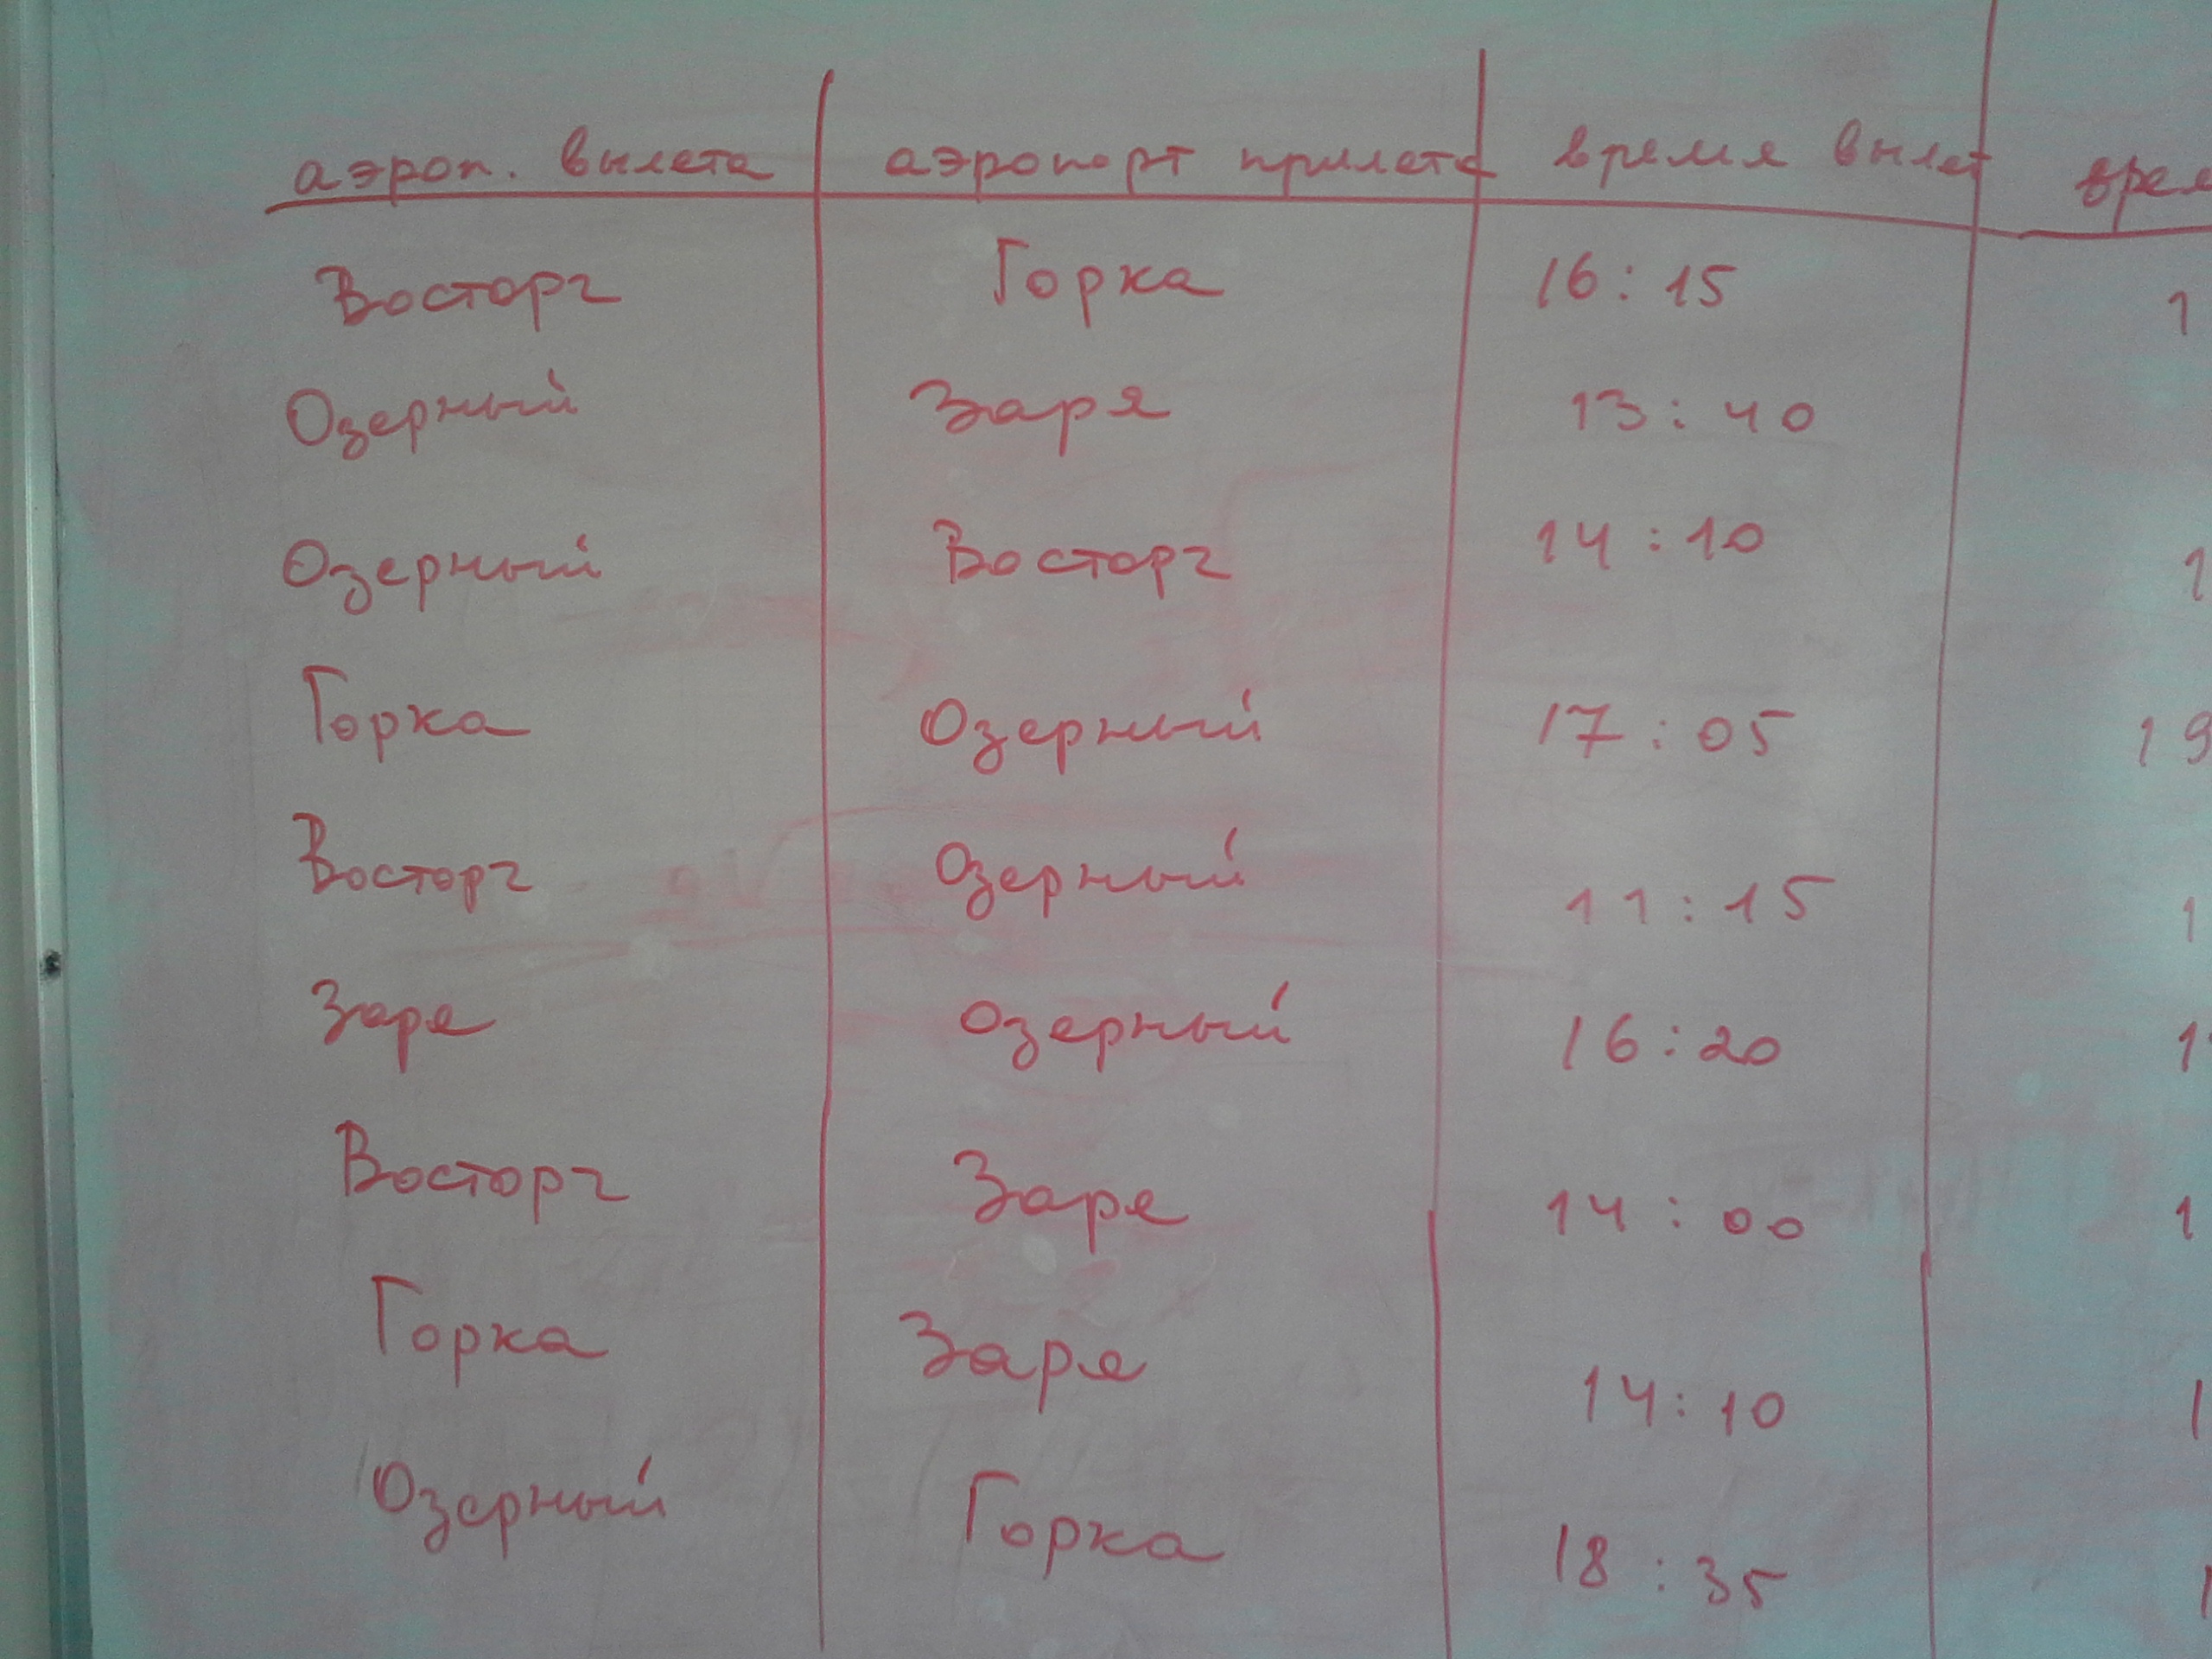 аэроп. вылета аэропорт прилета время вылет время
Восторг Горка 16:15 1
Озерный Заря 13:40
Озерный Восторг 14:10 1
Горка Озерный 17:05 19
Восторг Озерный 11:15 1
Заря Озерный 16:20 1
Восторг Заря 14:00 1
Горка Заря 14:10 1
Озерный Горка 18:35 1